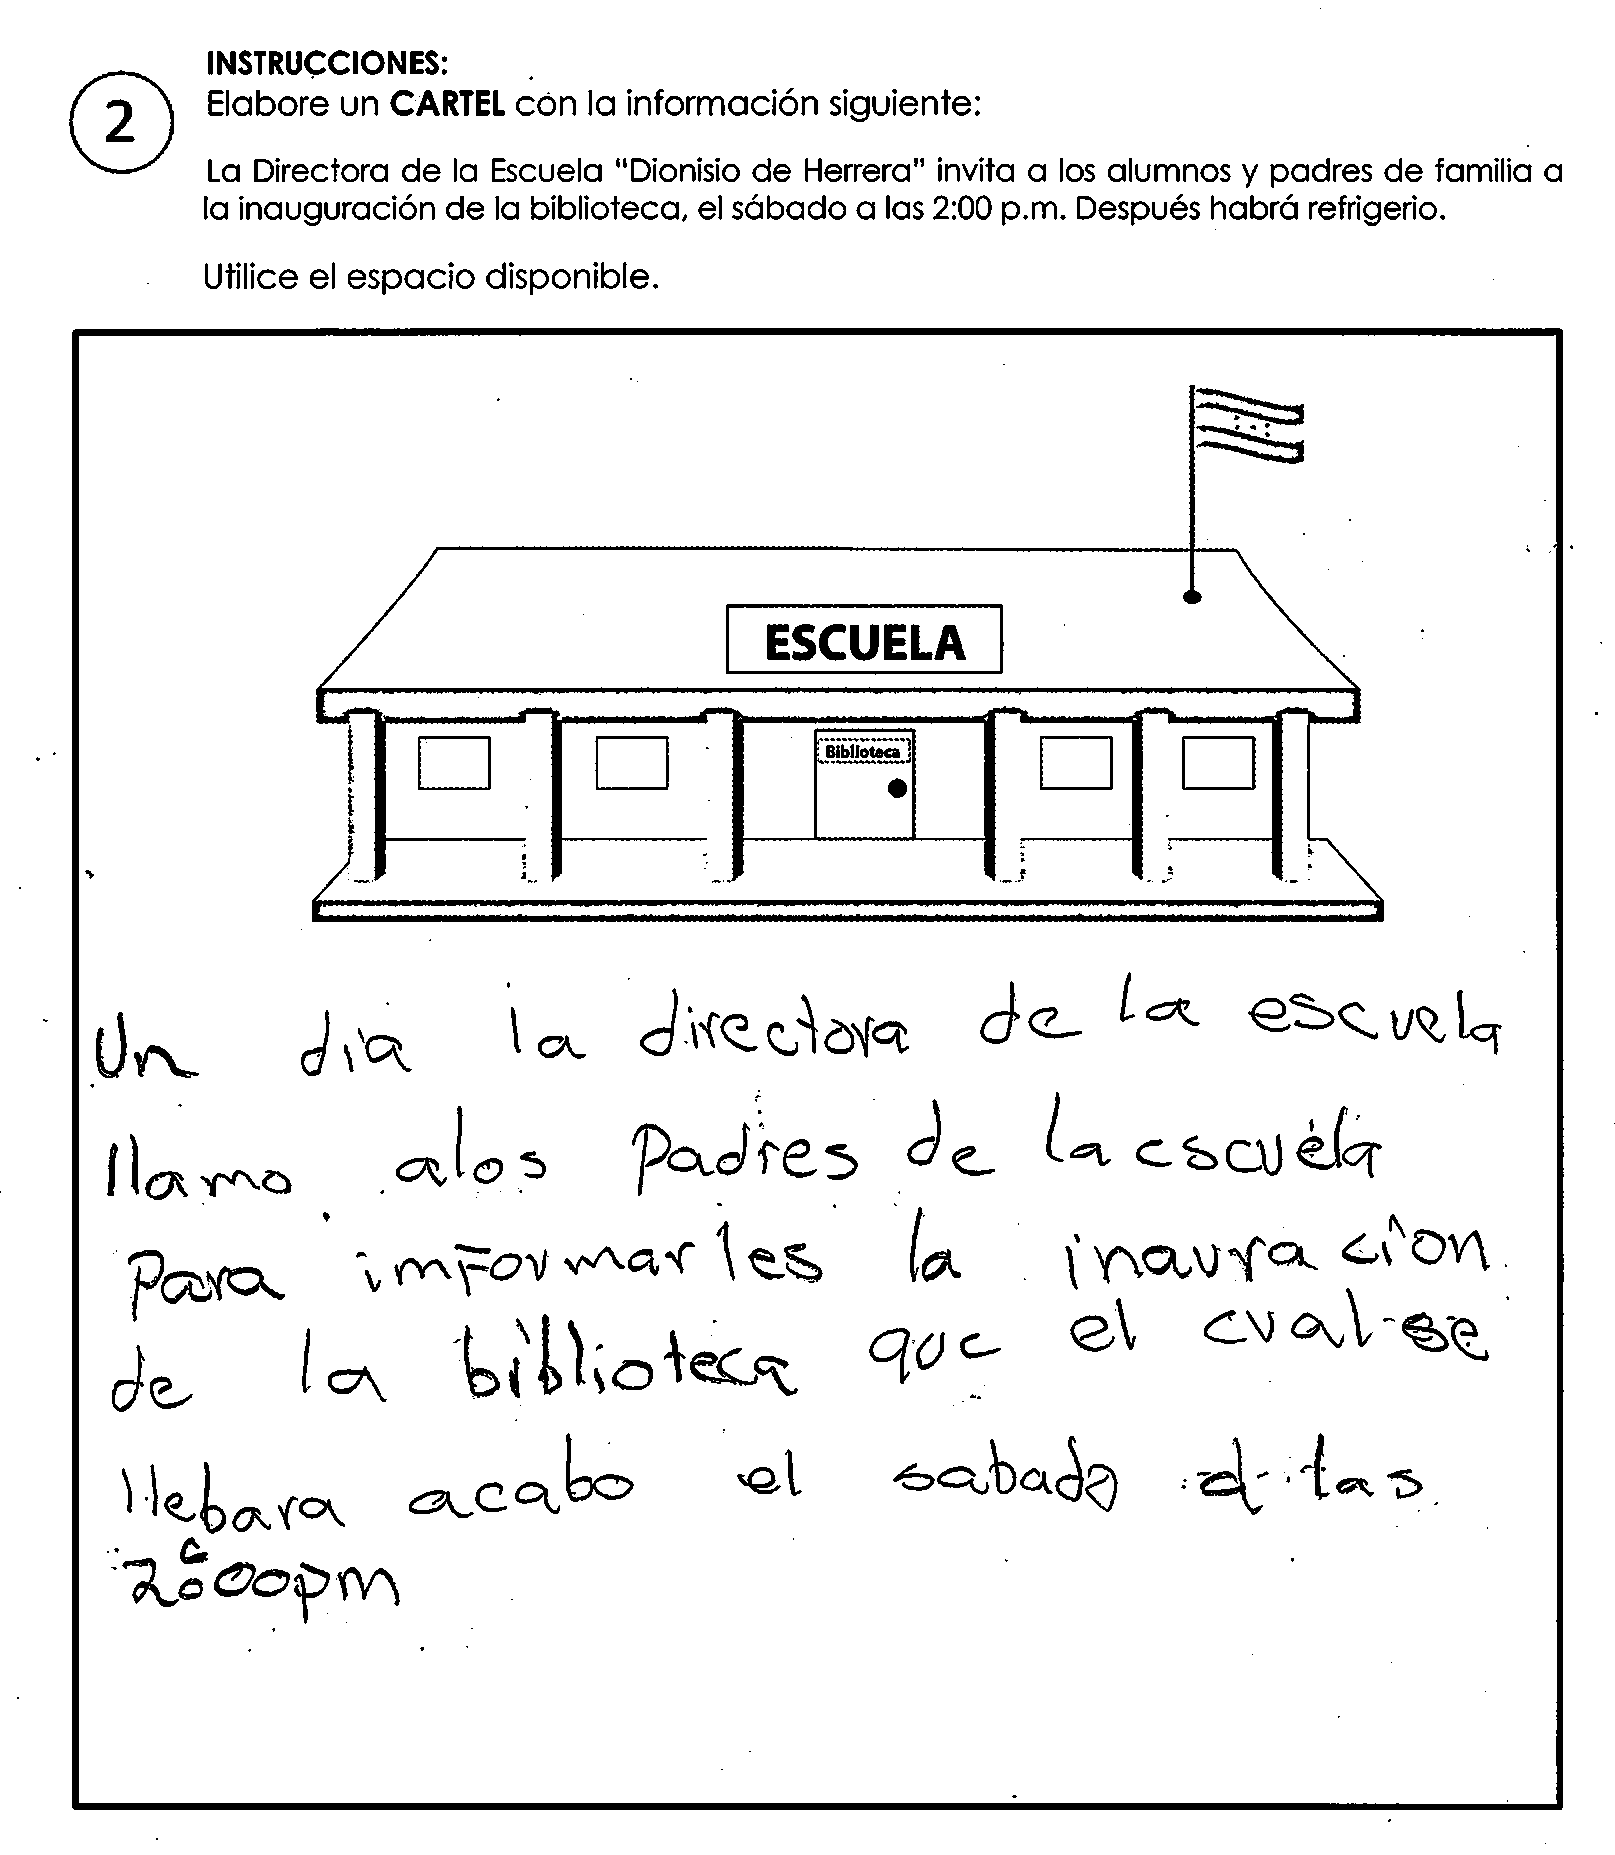 INSTRUCCIONES:
2
Elabore un CARTEL con la información siguiente:
La Directora de la Escuela "Dionisio de Herrera" invita a los alumnos y padres de familia a
la inauguración de la biblioteca, el sábado a las 2:00 p.m. Después habrá refrigerio.
Utilice el espacio disponible.
ESCUELA
Biblioteca
Un dia la directora de la escuela
llamo alos Padres de la escuela
Para imformarles la inauración
de la biblioteca que el cual se
llebara acabo el sabado a las
2:00pm